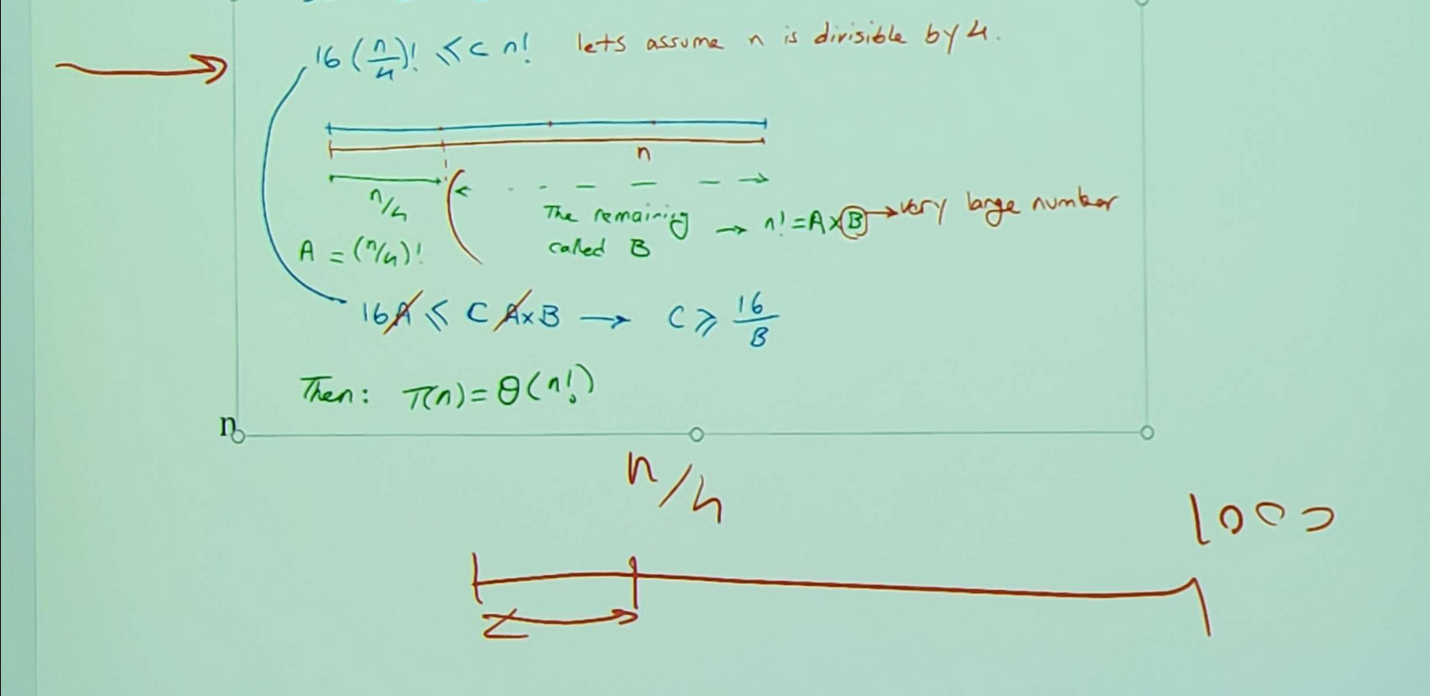 16(n/4)! ≤ c n! lets assume n is divisible by 4.
n
n/4
The remaining called B → n! = A×B → very large number
A = (n/4)!
16A ≤ C A×B → C ≥ 16/B
Then: T(n) = θ(n!)
n
n/4
1000